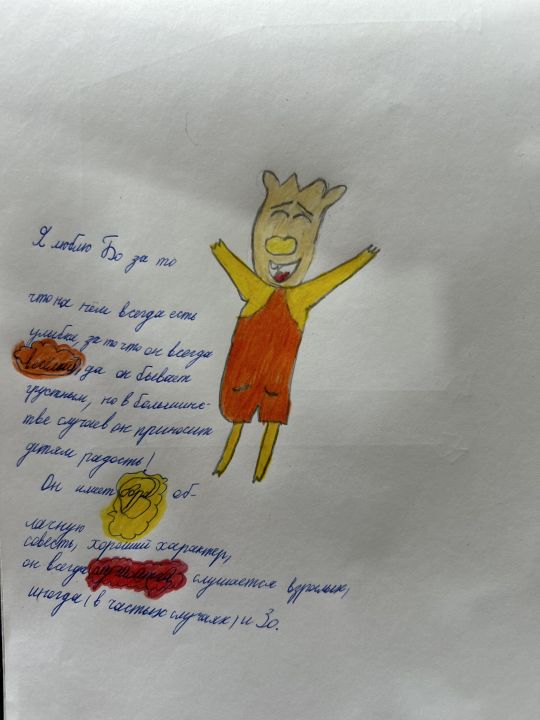 Я люблю Бо за то
что на нём всегда есть
улыбка, за то что он всегда
весёлый, да он бывает
грустным, но в большинс-
тве случаев он приносит
детям радость!
Он имеет об-
лачную
совесть, хороший характер,
он всегда слушается взрослых,
иногда (в частых случаях) и Зо.